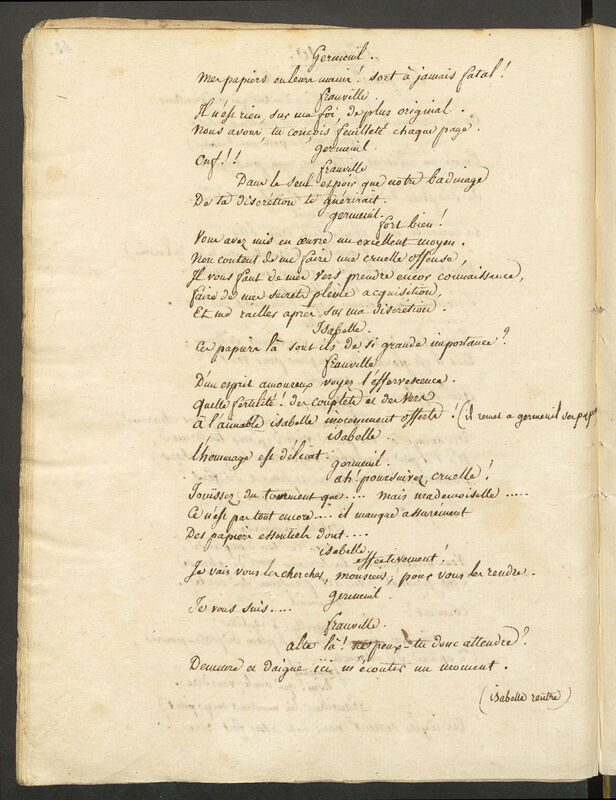 Germeuil.
Mes papiers en leurs mains! sort à jamais fatal!
frauville.
Il n'est rien, sur ma foi, de plus original.
Nous avons, tu conçois feuilleté chaque page.
germeuil.
Ouf!!
frauville
Dans le seul espoir que notre badinage
De ta discrétion te guérirait.
germeuil.
fort bien!
Vous avez mis en œuvre un excellent moyen.
Non content de me faire une cruelle offense,
Il vous faut de mes vers prendre encor connaissance,
faire de mes secrets pleine acquisition,
Et me railler après sur ma discrétion.
Isabelle.
Ces papiers là sont ils de si grande importance?
frauville
D'un esprit amoureux voyez l'effervescence.
Quelle fertilité! des couplets et des vers
à l'aimable isabelle innocemment offerts! (il remet a germeuil ses papiers
isabelle.
l'hommage est délicat.
germeuil.
ah! poursuivez, cruelle!
Jouissez du tourment que.... mais mademoiselle .....
Ce n'est pas tout encore.... il manque assurement
Des papiers essentiels dont....
isabelle.
effectivement!
Je vais vous les chercher, monsieur, pour vous les rendre.
germeuil.
Je vous suis.....
frauville.
alte là! ne peux-tu donc attendre?
Demeure et daigne ici m'écouter un moment.
(isabelle rentre)